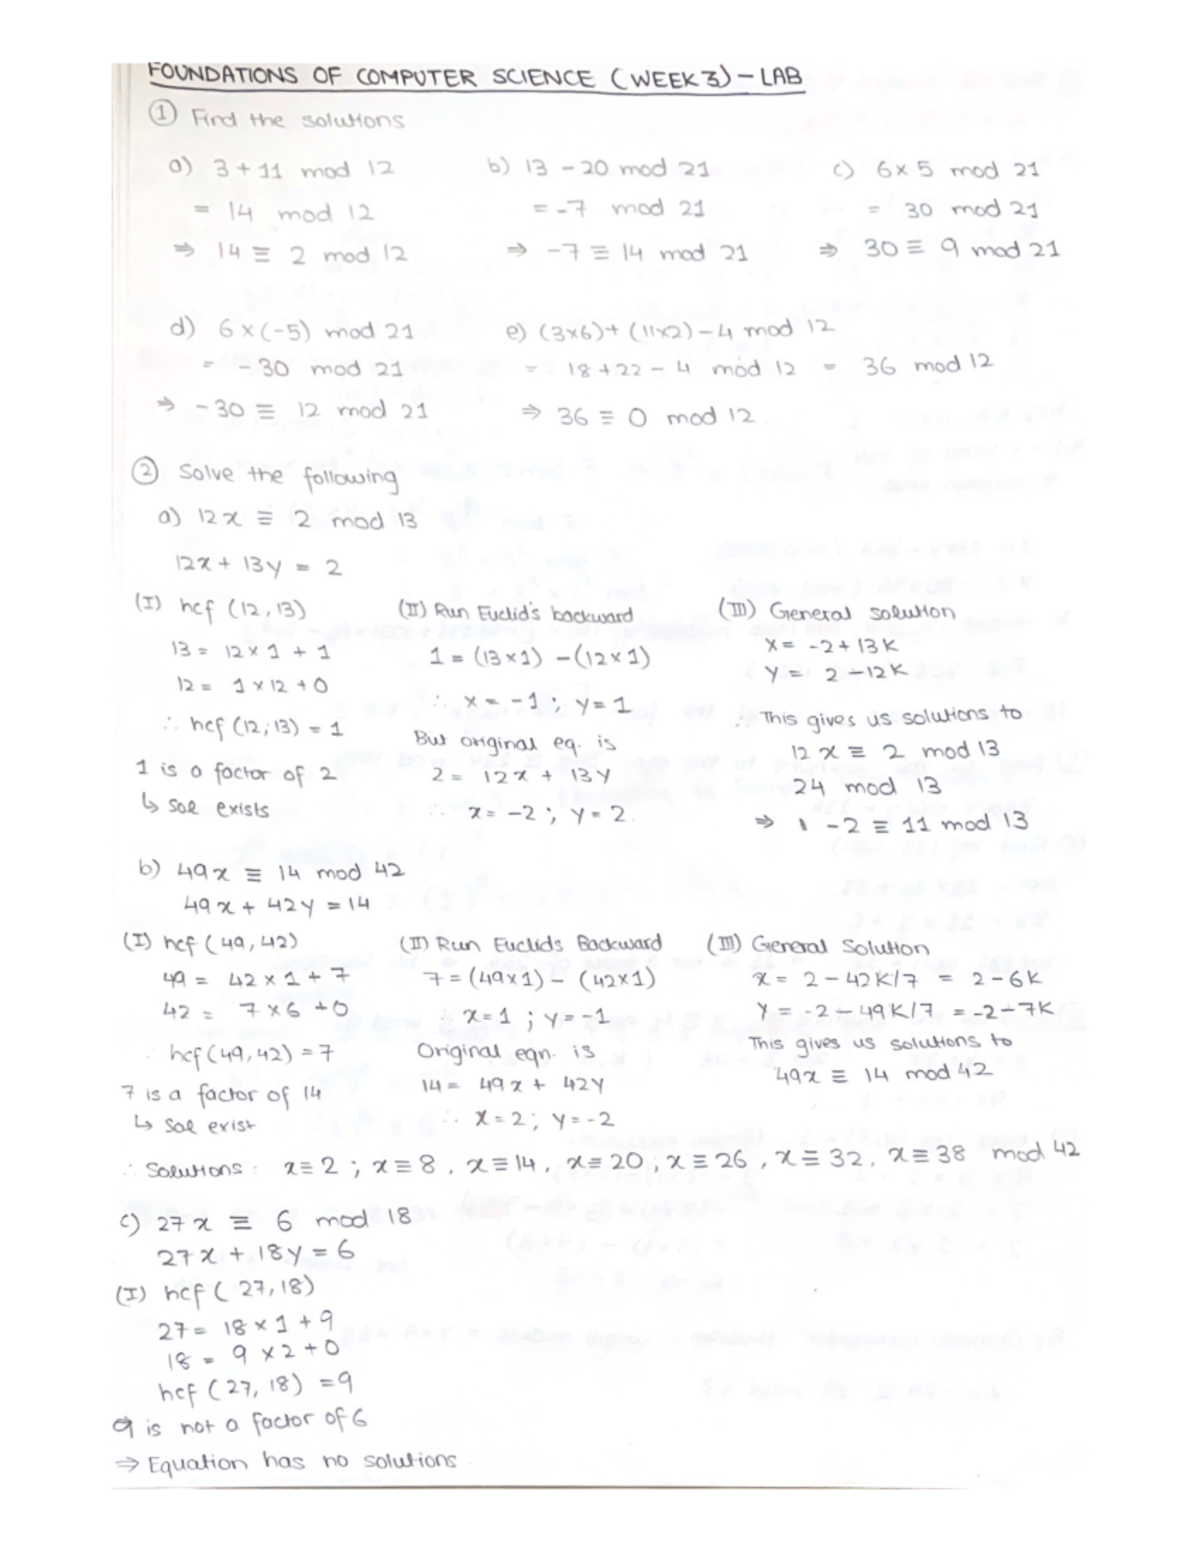 FOUNDATIONS OF COMPUTER SCIENCE (WEEK 3) – LAB
① Find the solutions
a) 3 + 11 mod 12
= 14 mod 12
⇒ 14 ≡ 2 mod 12
b) 13 – 20 mod 21
= -7 mod 21
⇒ -7 ≡ 14 mod 21
c) 6 × 5 mod 21
= 30 mod 21
⇒ 30 ≡ 9 mod 21
d) 6 × (-5) mod 21
= -30 mod 21
⇒ -30 ≡ 12 mod 21
e) (3×6) + (11×2) – 4 mod 12
= 18 + 22 – 4 mod 12 = 36 mod 12
⇒ 36 ≡ 0 mod 12
② Solve the following
a) 12x ≡ 2 mod 13
12x + 13y = 2
(I) hcf (12, 13)
13 = 12 × 1 + 1
12 = 1 × 12 + 0
∴ hcf (12, 13) = 1
1 is a factor of 2
↳ Sol exists
(II) Run Euclid's backward
1 = (13 × 1) – (12 × 1)
∴ x = -1 ; y = 1
But original eq. is
2 = 12x + 13y
∴ x = -2 ; y = 2
(III) General solution
x = -2 + 13K
y = 2 – 12K
∴ This gives us solutions to
12x ≡ 2 mod 13
24 mod 13
⇒ -2 ≡ 11 mod 13
b) 49x ≡ 14 mod 42
49x + 42y = 14
(I) hcf (49, 42)
49 = 42 × 1 + 7
42 = 7 × 6 + 0
∴ hcf (49, 42) = 7
7 is a factor of 14
↳ Sol exist
(II) Run Euclids Backward
7 = (49×1) – (42×1)
∴ x = 1 ; y = -1
Original eqn. is
14 = 49x + 42y
∴ x = 2 ; y = -2
(III) General Solution
x = 2 – 42K/7 = 2 – 6K
y = -2 – 49K/7 = -2 – 7K
This gives us solutions to
49x ≡ 14 mod 42
∴ Solutions : x ≡ 2 ; x ≡ 8 , x ≡ 14 , x ≡ 20 ; x ≡ 26 , x ≡ 32 , x ≡ 38 mod 42
c) 27x ≡ 6 mod 18
27x + 18y = 6
(I) hcf (27, 18)
27 = 18 × 1 + 9
18 = 9 × 2 + 0
hcf (27, 18) = 9
9 is not a factor of 6
⇒ Equation has no solutions